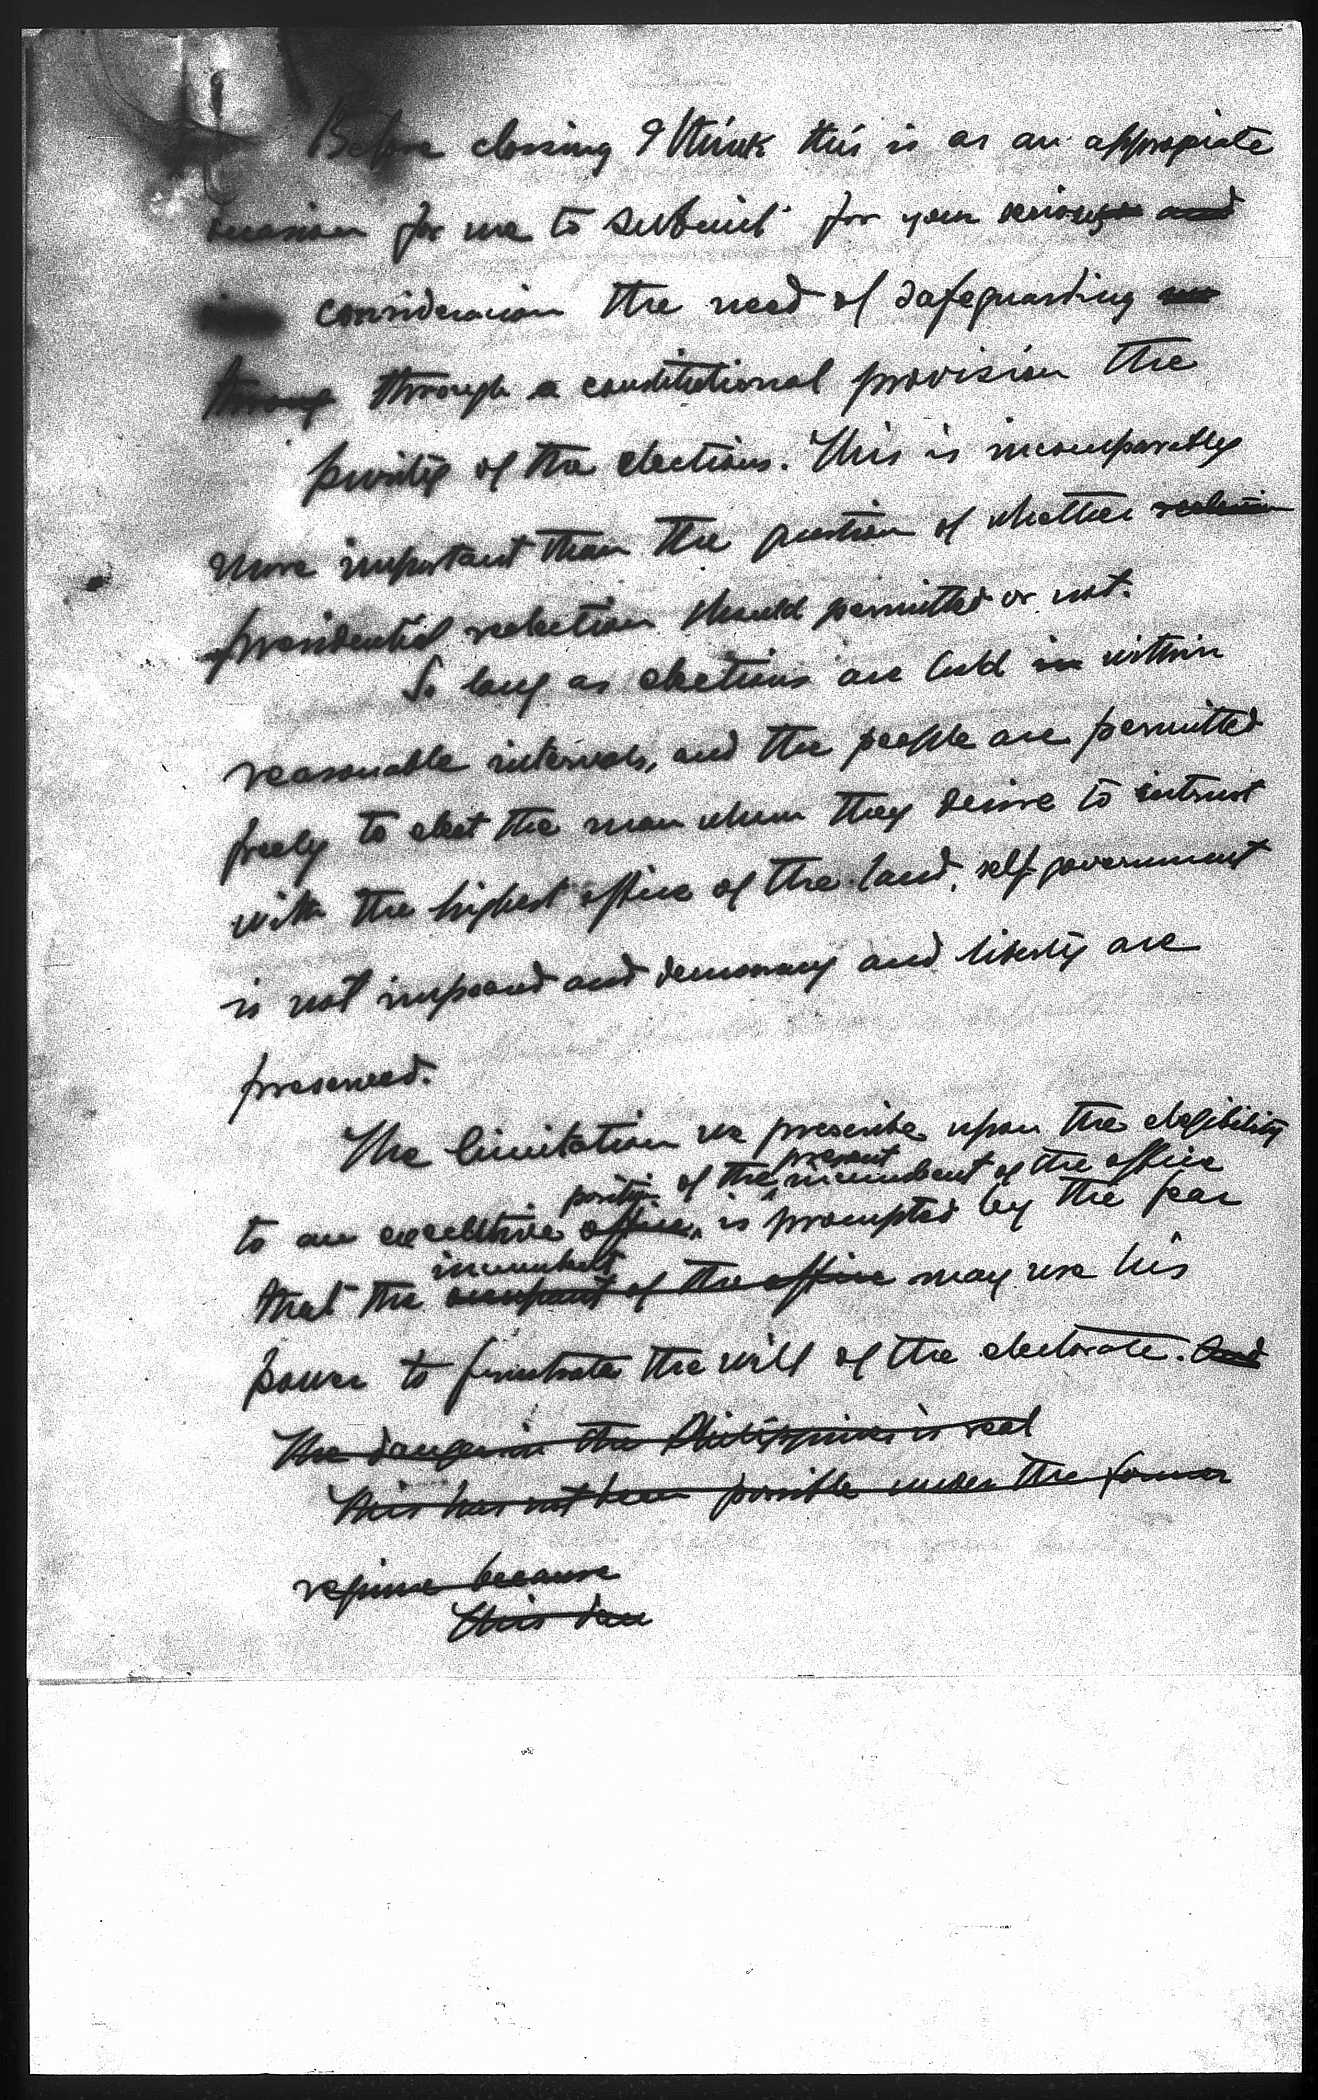 Before closing I think this is as an appropiate
occasion for me to submit for your serious and
consideracion the need of safeguarding
through through a constitutional provision the
purity of the elections. This is incomparably
more important than the question of whether reelection
presidential reelection should permitted or not.
So long as elections are held in within
reasonable intervals, and the people are permitted
freely to elect the man whom they desire to intrust
with the highest office of the land, self government
is not impaired and democracy and liberty are
preserved.
The limitation we prescribe upon the elegibility
present
position of the incumbent of the office
to an executive office, is prompted by the fear
incumbent
that the occupant of the office may use his
power to frustrate the will of the electorate. And
The danger in the Philippines is real
This has not been possible under the former
regime because
This dan